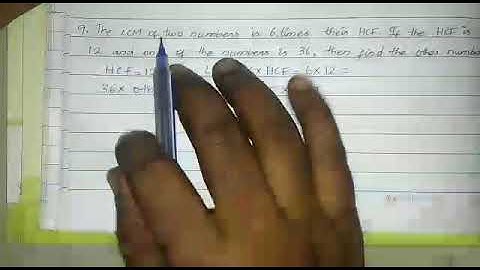 9. The LCM of two numbers is 6 times their HCF. If the HCF is
12 and one of the numbers is 36, then find the other number
HCF = 12 × HCF = 6 × 12 =
36 ×